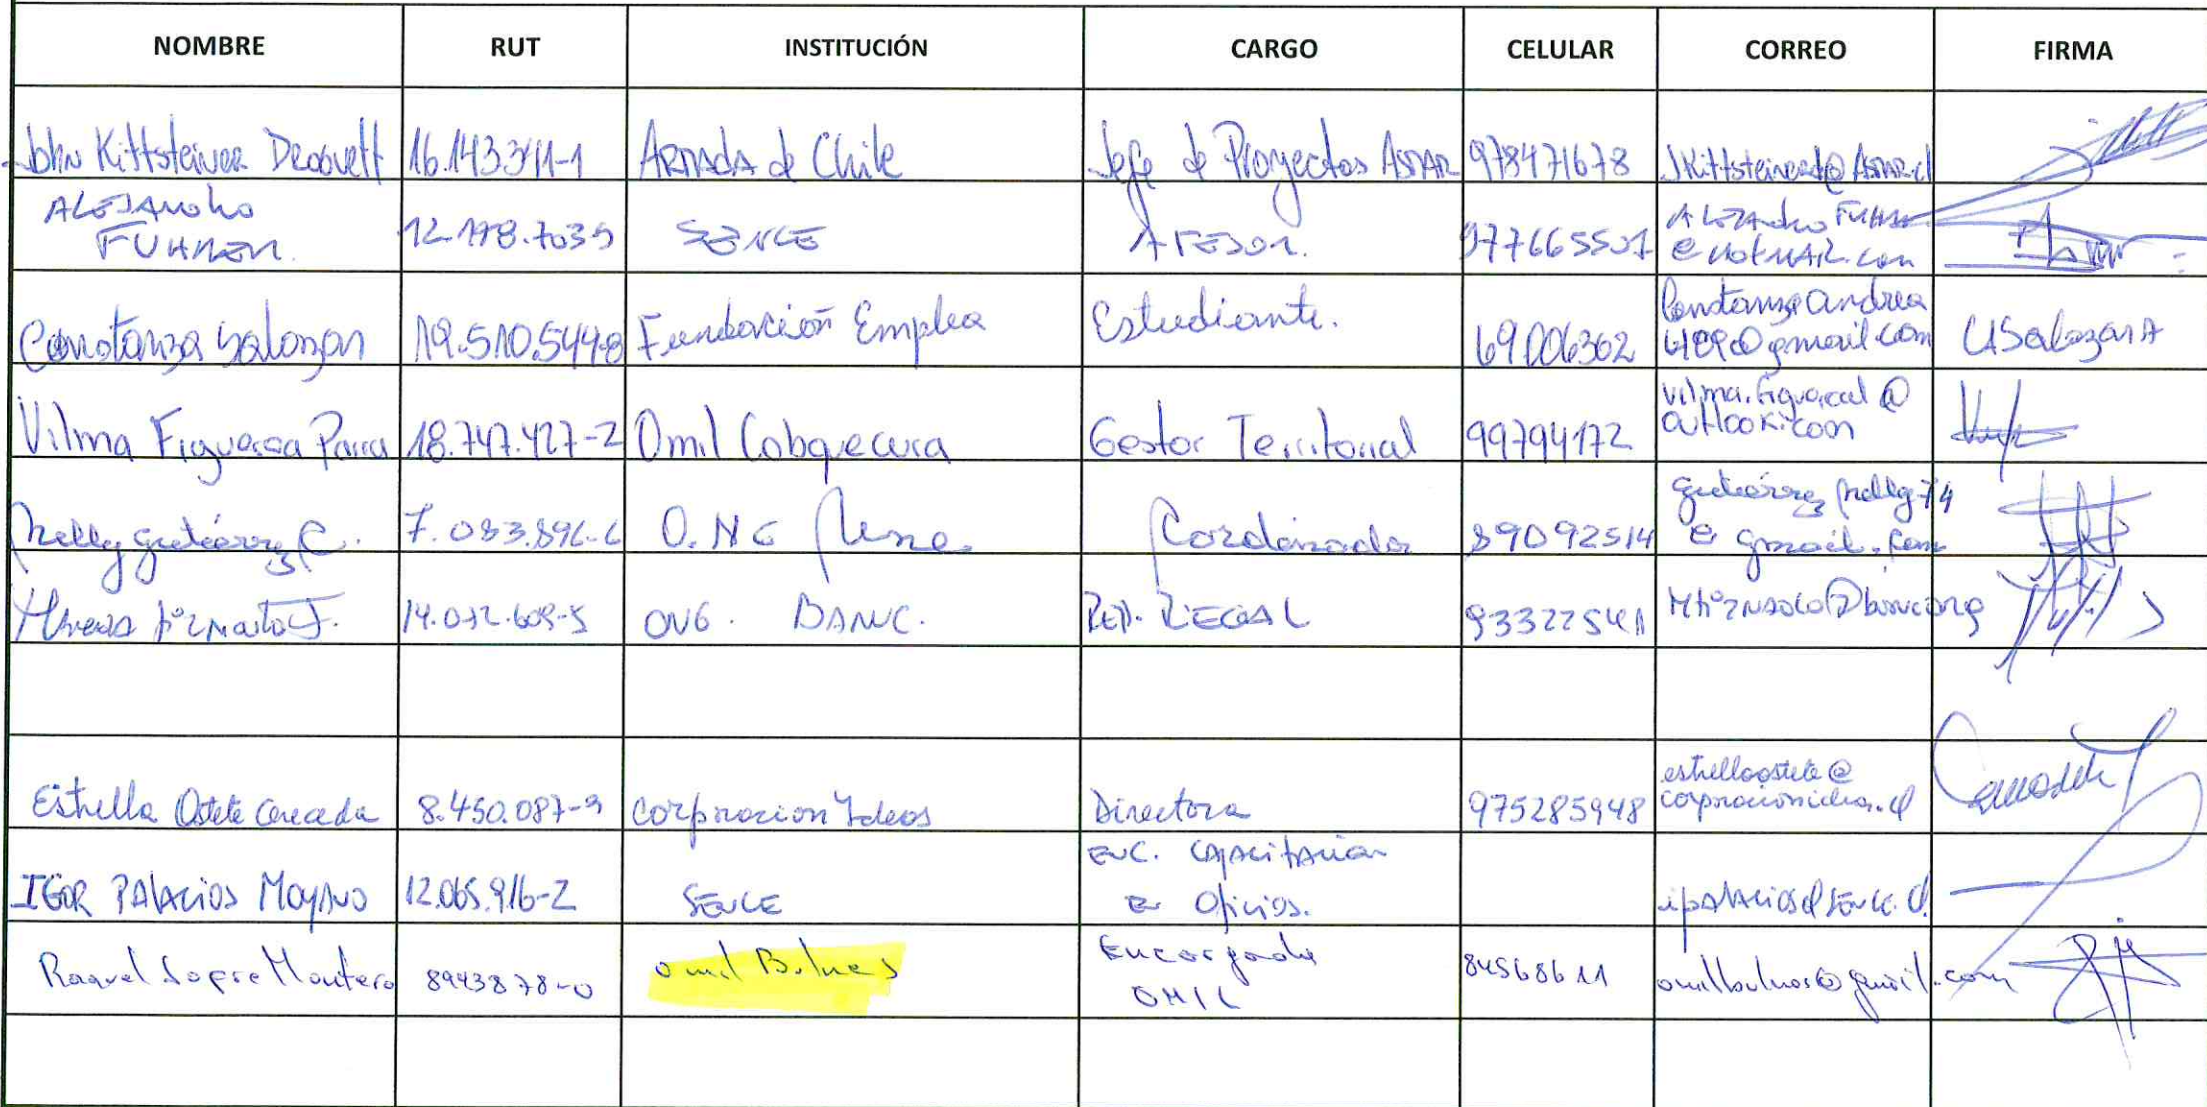 NOMBRE RUT INSTITUCIÓN CARGO CELULAR CORREO FIRMA
John Kittsteiner 16.143.341-1 Armada de Chile Jefe de Proyectos ASMAR 978471678
ALEJANDRO
FUHRER 12.178.703-9 SENCE ASESOR. 977665501
@ HOTMAIL.com
Constanza Salazar 19.510.544-8 Fundación Emplea Estudiante. 69006362 CASalazarA
Vilma Figueroa Parra 18.747.427-2 Omil Cobquecura Gestor Territorial 99794172
outlook.com
Nelly Gutiérrez C. 7.083.896-6 O.N.G Cordinadora 89092514 gutiérrez nelly 74
@ gmail.com
14.012.609-5 ONG. BANC. REP. LEGAL 93322541
Estrella Ostete Cereceda 8.450.087-9 Corporacion Ideas Directora 975285948 estrellaostete@
IGOR PALACIOS MOYANO 12.065.916-2 SENCE ENC. CAPACITACION
EN Oficios. ipalacios@sence.cl
Raquel Montero 8943878-0 omil Bulnes Encargada
OMIL 84568611 omilbulnes@gmail.com